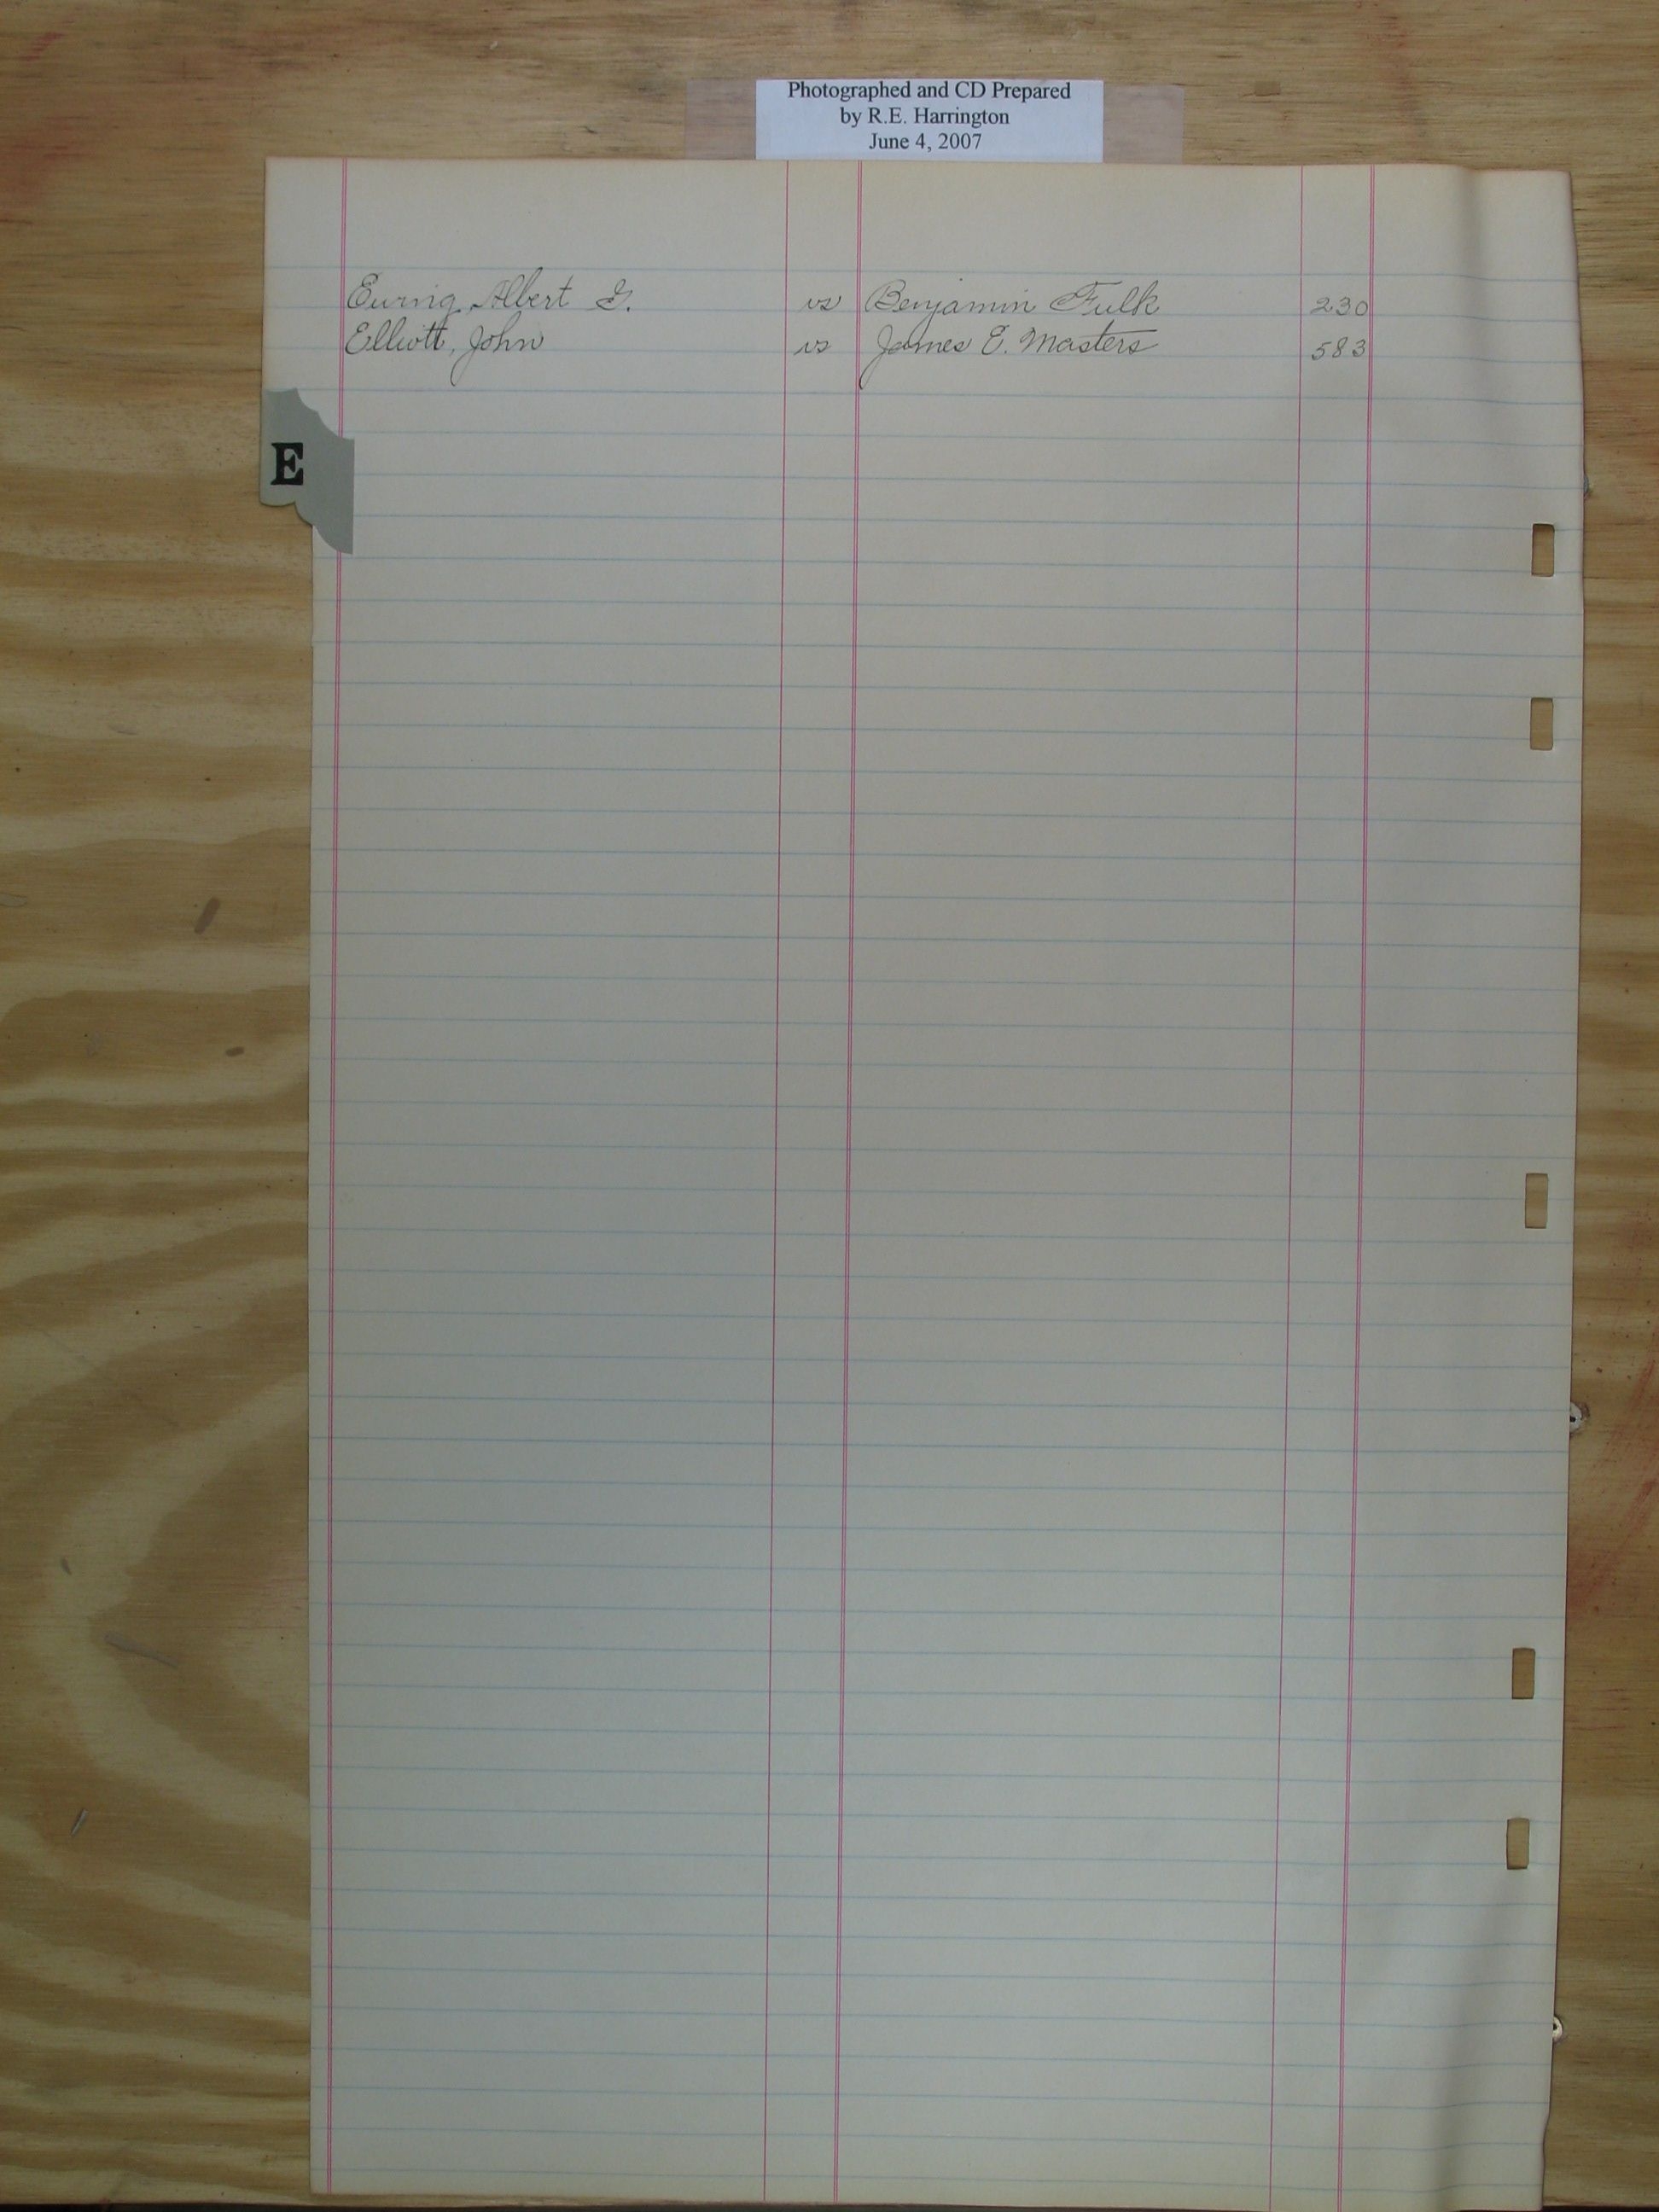 Photographed and CD Prepared
by R.E. Harrington
June 4, 2007
Ewing, Albert G. vs Benjamin Fulk 230
Elliott, John vs James E. Masters 583
E